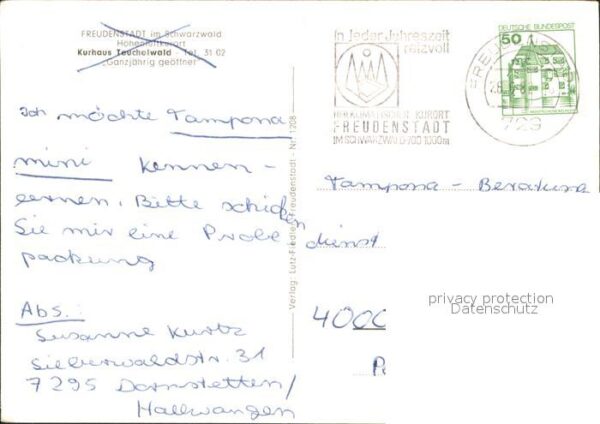 FREUDENSTADT im Schwarzwald
Höhenluftkurort
Kurhaus Teuchelwald - Tel. 31 02
„Ganzjährig geöffnet"
Ich möchte Tampona
mini kennen-
lernen. Bitte schicken
Sie mir eine Probe
packung
Abs.:
Susanne Kurtz
Silberwaldstr. 31
7295 Dornstetten/
Hallwangen
Verlag: Lutz-Friedle, Freudenstadt Nr. 1208
In jeder Jahreszeit
reizvoll
HEILKLIMATISCHER KURORT
FREUDENSTADT
IM SCHWARZWALD 700-1000m
FREUDENSTADT
729
DEUTSCHE BUNDESPOST
50
Tampona - Beratung
dienst
4000
privacy protection
Datenschutz